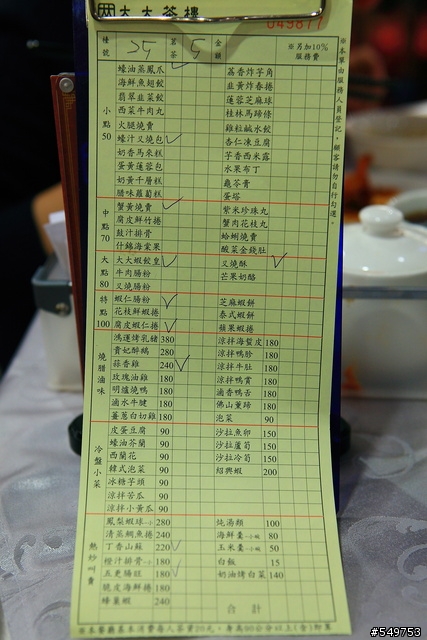 大大茶樓
049811
檯號 25 茗茶 5 金額 ※另加10%服務費
小點50
蠔油蒸鳳爪 荔香炸芋角
海鮮魚翅餃 韭黃炸春捲
翡翠韭菜餃 蓮蓉芝麻球
西菜牛肉丸 桂林馬蹄條
火腿燒賣 雞粒鹹水餃
蠔汁叉燒包 杏仁凍豆腐
奶香馬來糕 芋香西米露
蛋黃蓮蓉包 水果布丁
奶黃千層糕 龜苓膏
臘味蘿蔔糕 蛋塔
中點70
蟹黃燒賣 紫米珍珠丸
腐皮鮮竹捲 蟹肉花枝丸
鼓汁排骨 蛤蜊燒賣
什錦海棠果 酸菜金錢肚
大點80
大大蝦餃皇 叉燒酥
牛肉腸粉 芒果奶酪
叉燒腸粉
特點100
蝦仁腸粉 芝麻蝦餅
花枝鮮蝦捲 泰式蝦餅
腐皮蝦仁捲 蘋果蝦捲
燒臘滷味
鴻運烤乳豬 380 涼拌海蜇皮 180
貴妃醉鴿 280 涼拌鴨胗 180
蒜香雞 240 涼拌牛肚 180
玫瑰油雞 180 涼拌鴨賞 180
明爐燒鴨 180 滷香鴨舌 180
滷水牛腱 180 佛山董蹄 180
薑蔥白切雞 180 泡菜 90
冷盤小菜
皮蛋豆腐 90 沙拉魚卵 150
蠔油芥蘭 90 沙拉蘆筍 150
西蘭花 90 沙拉冷筍 150
韓式泡菜 90 紹興蝦 200
冰糖芋頭 90
涼拌苦瓜 90
涼拌小黃瓜 90
熱炒叫賣
鳳梨蝦球-小 280 炖湯類 100
清蒸鯛魚捲 240 海鮮羹-小碗 80
丁香山蘇 220 玉米羹-小碗 50
橙汁排骨-小 180 白飯 15
五更腸旺 180 奶油烤白菜 140
脆皮海鮮捲 180
蜂巢蝦 240
合計
※本單由服務人員登記，顧客請勿自行勾選。
#549753